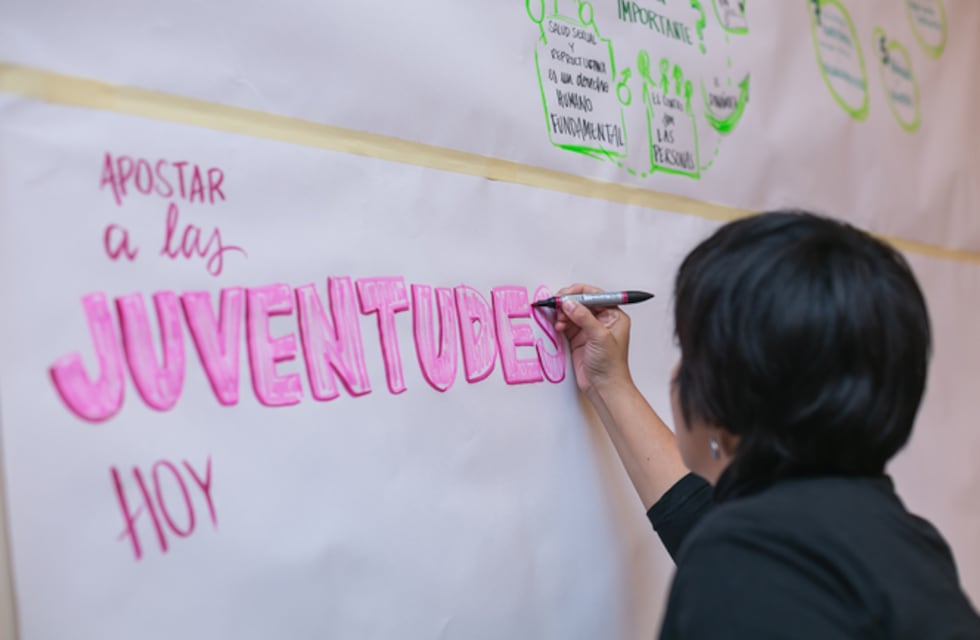 IMPORTANTE?
SALUD SEXUAL
Y
REPRODUCTIVA
es un derecho
HUMANO
FUNDAMENTAL
EL CENTRO
SON
LAS
PERSONAS
APOSTAR
a las
JUVENTUDES
HOY